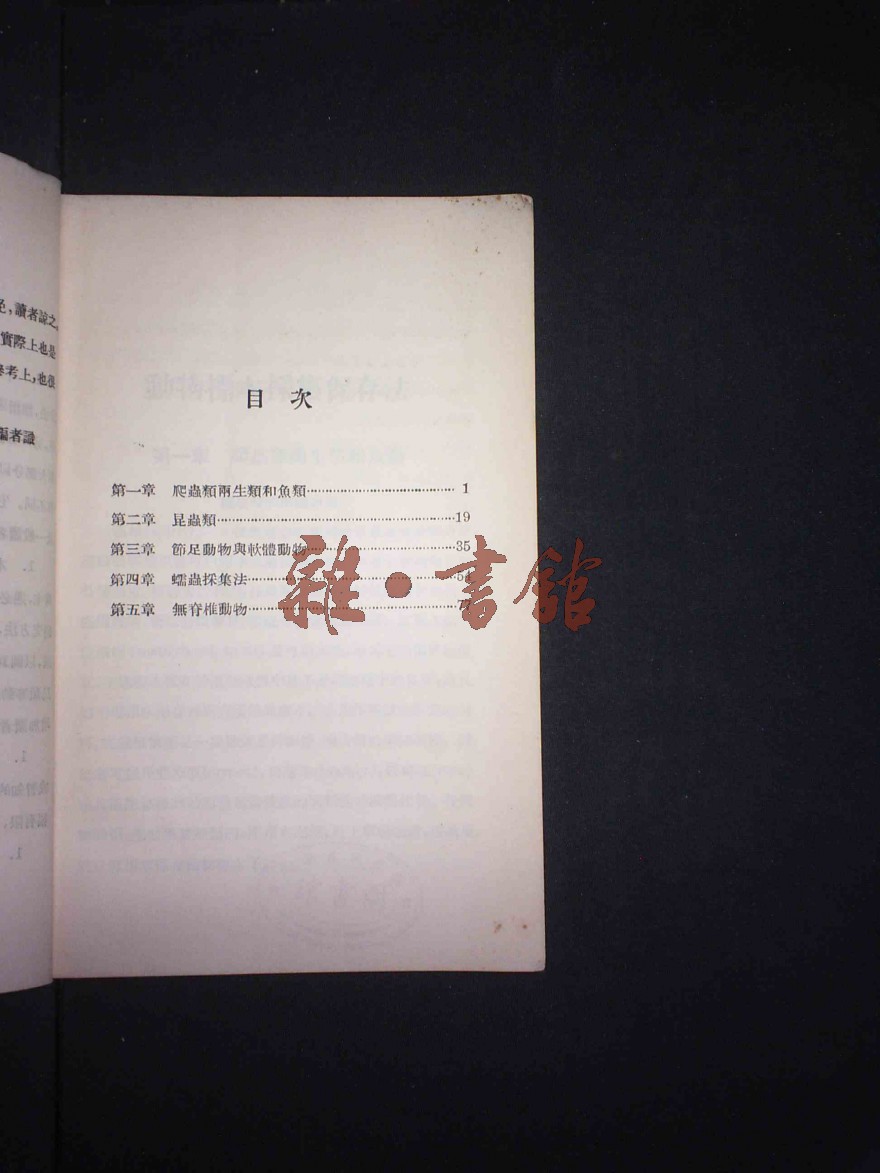 ，讀者諒之。
實際上也是
參考上，也很
編者識
目 次
第一章 爬蟲類兩生類和魚類 1
第二章 昆蟲類 19
第三章 節足動物與軟體動物 35
第四章 蠕蟲採集法
第五章 無脊椎動物 77
雜·書館